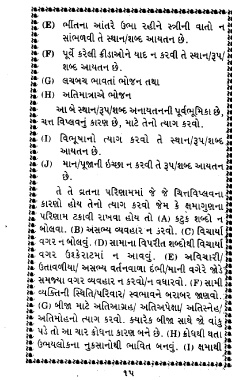 (E) ભીંતના આંતરે ઉભા રહીને સ્ત્રીની વાતો ન
સાંભળવી તે સ્થાન/શબ્દ આયતન છે.
(F) પૂર્વે કરેલી ક્રીડાઓને યાદ ન કરવી તે સ્થાન/રૂપ/
શબ્દ આયતન છે.
(G) લચબચ ભાવતાં ભોજન તથા
(H) અતિમાત્રાએ ભોજન
આ બે સ્થાન/રૂપ/શબ્દ અનાયતનની પૂર્વભૂમિકા છે,
ચિત્ત વિપ્લવનું કારણ છે, માટે તેનો ત્યાગ કરવો.
(I) વિભૂષાનો ત્યાગ કરવો તે સ્થાન/રૂપ/શબ્દ
આયતન છે.
(J) માન/પૂજાની ઇચ્છા ન કરવી તે રૂપ/શબ્દ આયતન
છે.
તે તે વ્રતના પરિણામમાં જે જે ચિત્તવિપ્લવના
કારણો હોય તેનો ત્યાગ કરવો જેમ કે ક્ષમાગુણના
પરિણામ ટકાવી રાખવા હોય તો (A) કટુક શબ્દો ન
બોલવા. (B) અસભ્ય વ્યવહાર ન કરવો. (C) વિચાર્યા
વગર ન બોલવું. (D) સામાના વિપરીત શબ્દોથી વિચાર્યા
વગર ઉશ્કેરાટમાં ન આવવું. (E) અવિચારી/
ઉતાવળીયા/ અસભ્ય વર્તનવાળા દંભી/માની વગેરે જોડે
સમજ્યા વગર વ્યવહાર ન કરવો/ન વધારવો. (F) સામી
વ્યક્તિની સ્થિતિ/પરિવાર/ સ્વભાવને બરાબર જાણવો.
(G) બીજા માટે અતિઆગ્રહ/અતિઅપેક્ષા/ અતિસ્નેહ/
અતિમોહનો ત્યાગ કરવો. ક્યારેક બીજા સાથે જો વાંકુ
પડે તો આ ચાર ક્રોધના કારણ બને છે. (H) ક્રોધથી થતા
ઉભયલોકના નુકસાનોથી ભાવિત બનવું. (I) ક્ષમાથી
૧૫